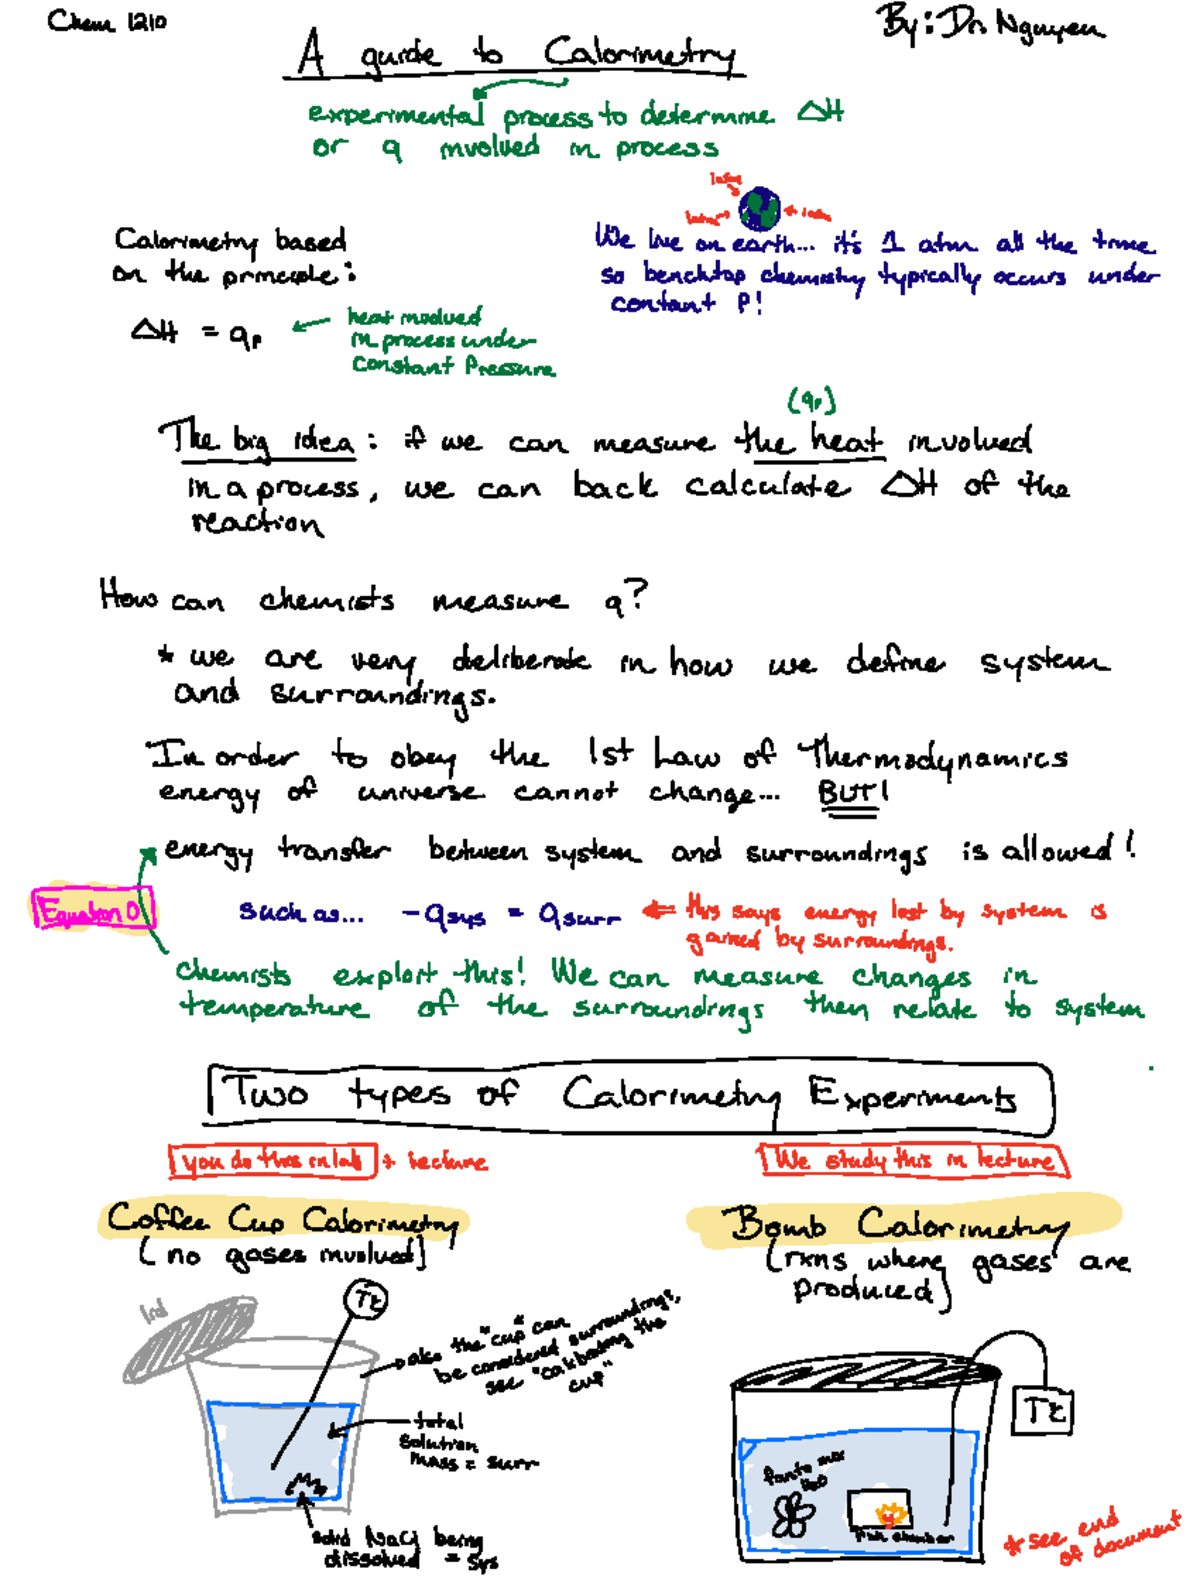 Chem 1210
By: Dr. Nguyen
A guide to Calorimetry
experimental process to determine ΔH
or q involved in process
Calorimetry based
on the principle:
ΔH = qp
heat involved
in process under
Constant Pressure
We live on earth... it's 1 atm all the time
so benchtop chemistry typically occurs under
contant P!
(qp)
The big idea: if we can measure the heat involved
in a process, we can back calculate ΔH of the
reaction
How can chemists measure q?
* we are very deliberate in how we define system
and surroundings.
In order to obey the 1st Law of Thermodynamics
energy of universe cannot change... BUT!
energy transfer between system and surroundings is allowed!
Equation 0
such as... -qsys = qsurr
this says energy lost by system is
gained by surroundings.
chemists exploit this! We can measure changes in
temperature of the surroundings then relate to system
Two types of Calorimetry Experiments
you do this in lab + lecture
We study this in lecture
Coffee Cup Calorimetry
(no gases involved)
Bomb Calorimetry
(rxns where gases are
produced)
lid
also the "cup" can
be considered surroundings,
see "calibrating the
cup"
total
solution
mass = surr
solid NaCl being
dissolved = sys
fan to mix
H2O
rxn chamber
* see end
of document